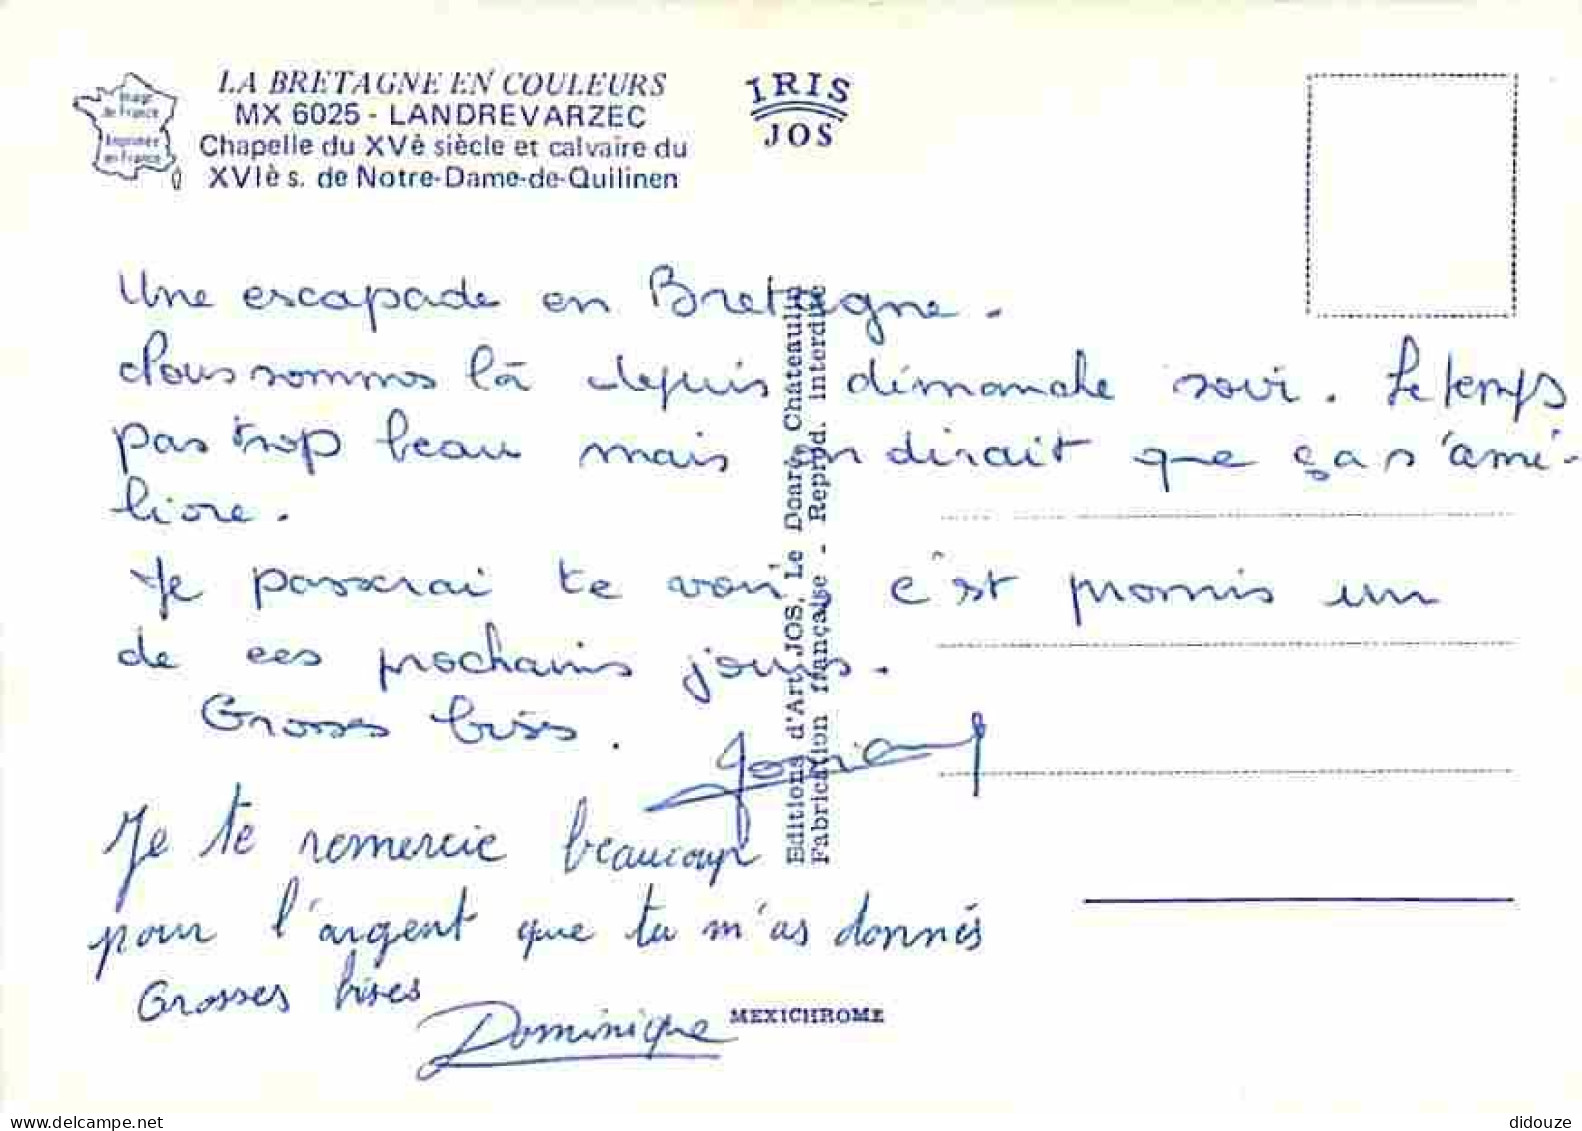 LA BRETAGNE EN COULEURS
MX 6025 - LANDREVARZEC
Chapelle du XVè siècle et calvaire du
XVIè s. de Notre-Dame-de-Quilinen
Image
de France
Imprimée
en France
IRIS
JOS
Une escapade en Bretagne.
Nous sommes là depuis dimanche soir. Le temps
pas trop beau mais on dirait que ça s'amé-
liore.
Je passerai te voir, c'est promis un
de ces prochains jours.
Grosses bises.
Je te remercie beaucoup
pour l'argent que tu m'as donnés
Grosses bises
Dominique
Editions d'Art JOS, Le Doaré, Châteaulin
Fabrication française - Reprod. interdite
MEXICHROME
www.delcampe.net
didouze